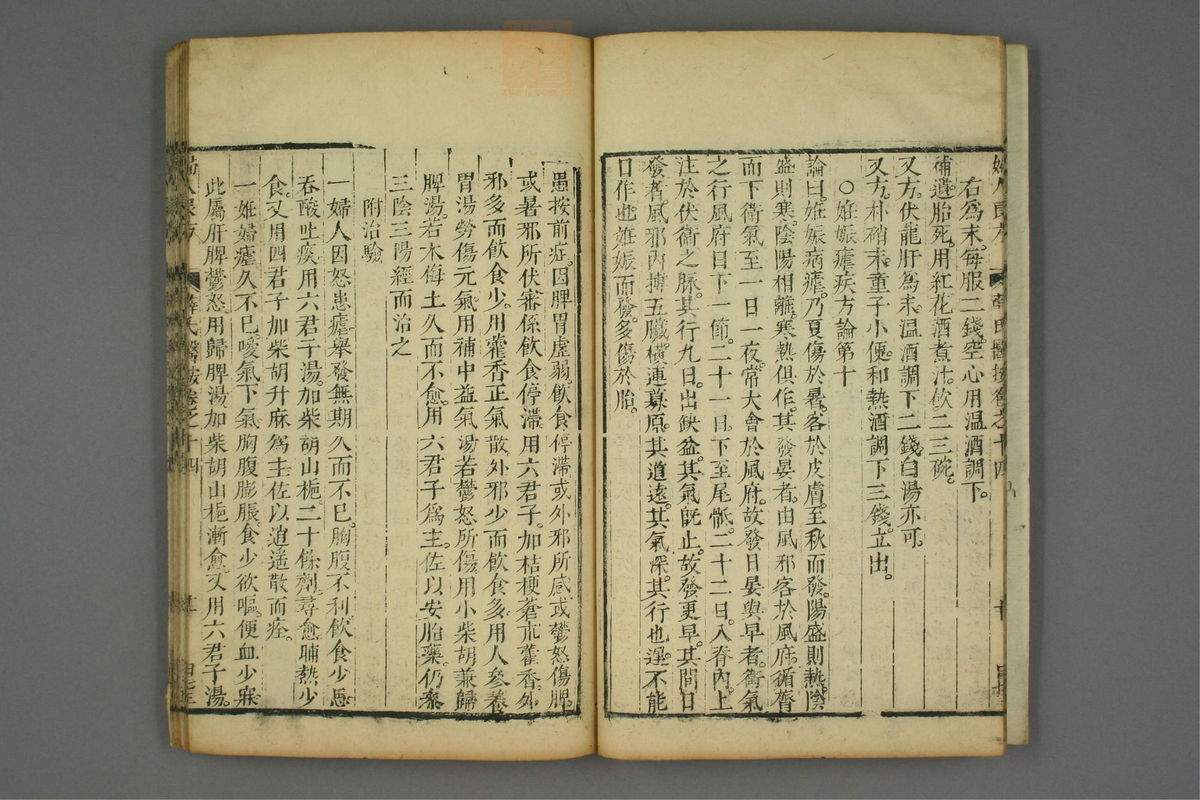 右爲末每服二錢空心用溫酒調下。
補遺胎死用紅花酒煮汁飲二三碗。
又方伏龍肝爲末溫酒調下二錢白湯亦可。
又方朴硝末童子小便和熱酒調下三錢立出。
○妊娠瘧疾方論第十
論曰妊娠病瘧乃夏傷於暑客於皮膚至秋而發陽盛則熱陰
盛則寒陰陽相離寒熱俱作其發晏者由風邪客於風府循膂
而下衛氣至一日一夜常大會於風府故發日晏與早者衛氣
之行風府日下一節二十一日下至尾骶二十二日入脊內上
注於伏衝之脉其行九日出鈌盆其氣既止故發更早其間日
發者風邪內搏五臟橫連募原其道遠其氣深其行也遲不能
日作也妊娠而發多傷於胎。
愚按前症因脾胃虛弱飲食停滯或外邪所感或鬱怒傷脾
或暑邪所伏審係飲食停滯用六君子加桔梗蒼朮藿香外
邪多而飲食少用藿香正氣散外邪少而飲食多用人參養
胃湯勞傷元氣用補中益氣湯若鬱怒所傷用小柴胡兼歸
脾湯若木侮土久而不愈用六君子爲主佐以安胎藥仍參
三陰三陽經而治之
附治驗
一婦人因怒患瘧舉發無期久而不已胸腹不利飲食少思
吞酸吐痰用六君子湯加柴胡山梔二十餘劑尋愈晡熱少
食又用四君子加柴胡升麻爲主佐以逍遙散而痊。
一妊婦瘧久不已噯氣下氣胸腹膨脹食少欲嘔便血少寐
此屬肝脾鬱怒用歸脾湯加柴胡山梔漸愈又用六君子湯。
婦人良方
薛氏醫按卷之十四